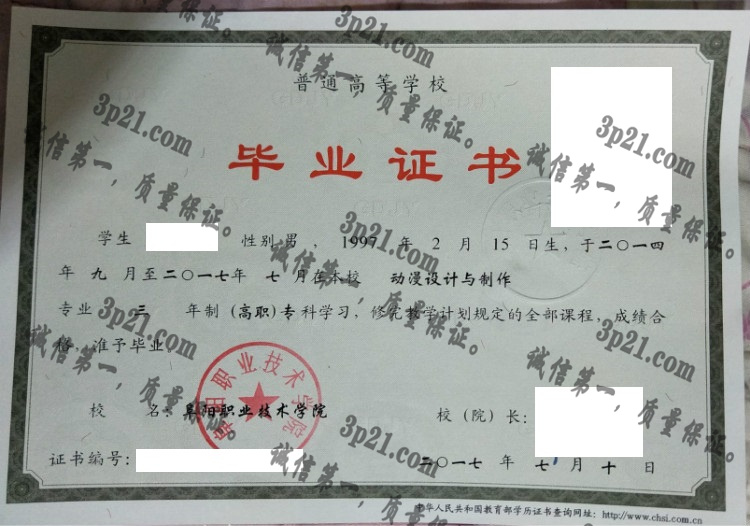 普通高等学校
毕业证书
学生 性别 男 ，1997 年 2 月 15 日生，于二〇一四
年 九 月至二〇一七年 七 月在本校 动漫设计与制作
专业 三 年制（高职）专科学习，修完教学计划规定的全部课程，成绩合
格，准予毕业。
校 名：阜阳职业技术学院
校（院）长：
证书编号：
二〇一七 年 七 月 十 日
中华人民共和国教育部学历证书查询网址：http://www.chsi.com.cn
阜阳职业技术学院
3p21.com
诚信第一，质量保证。
3p21.com
诚信第一，质量保证。
3p21.com
诚信第一，质量保证。
3p21.com
诚信第一，质量保证。
3p21.com
诚信第一，质量保证。
3p21.com
诚信第一，质量保证。
3p21.com
诚信第一，质量保证。
3p21.com
诚信第一，质量保证。